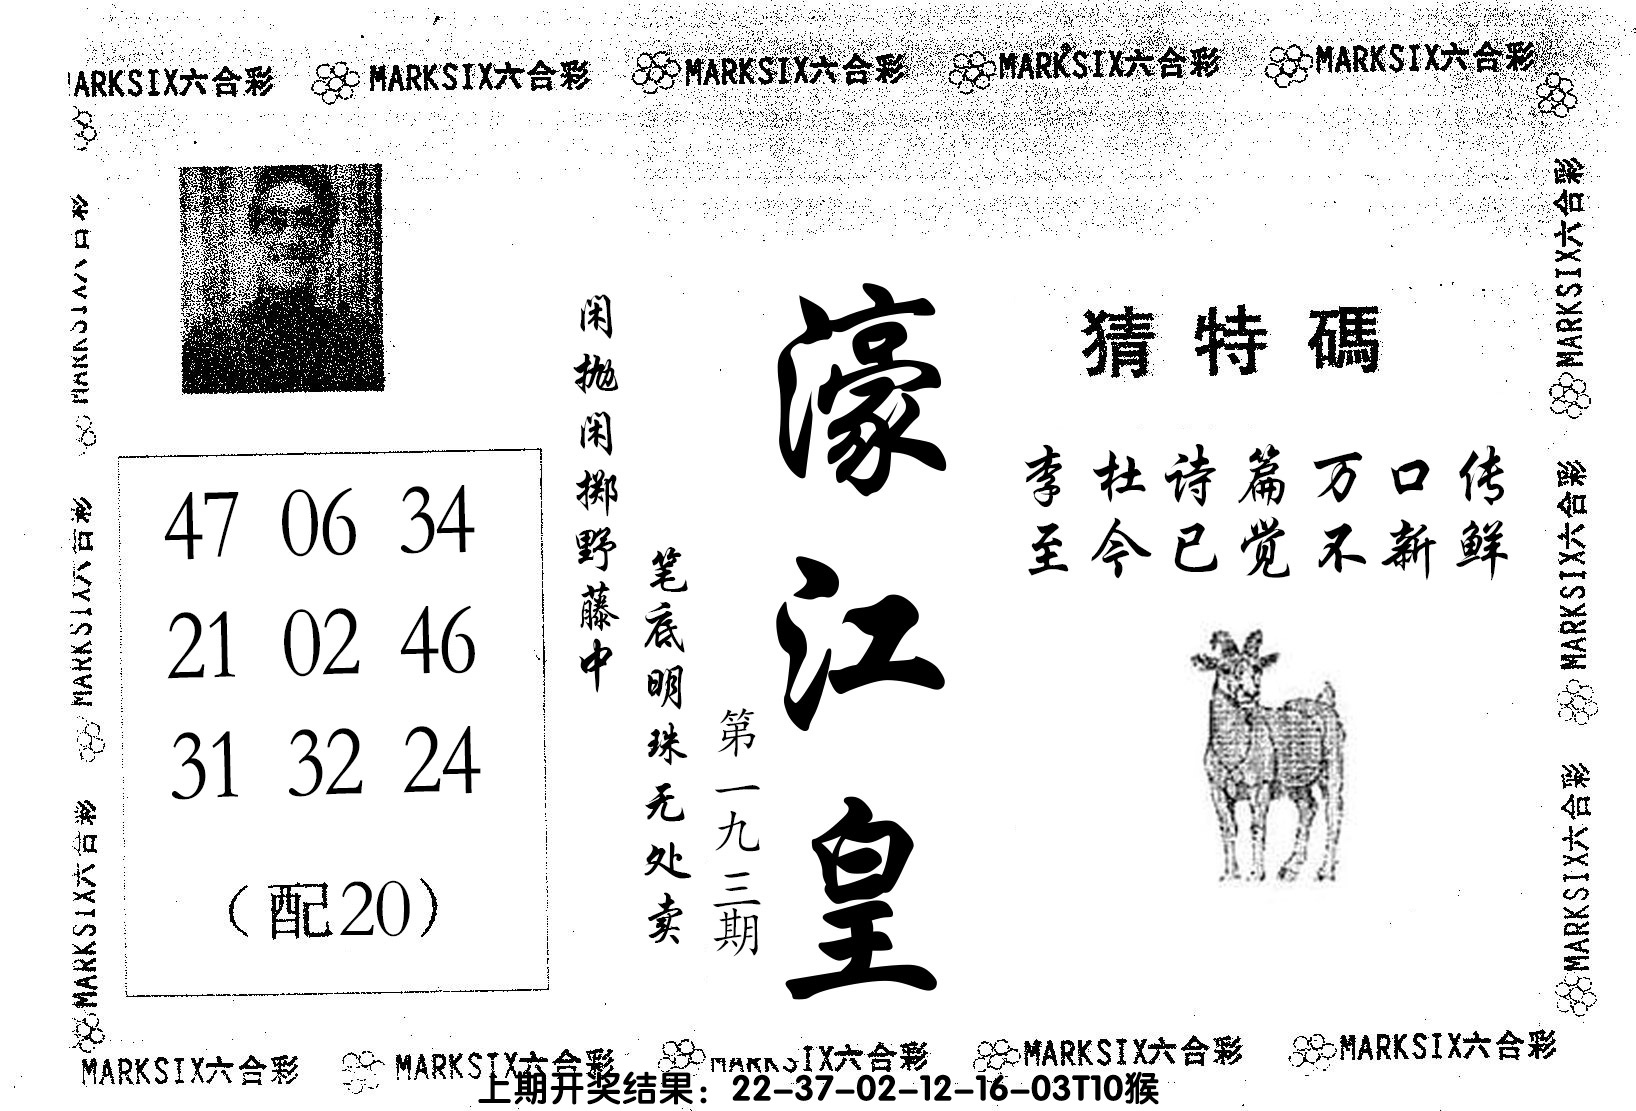 MARKSIX六合彩 MARKSIX六合彩 MARKSIX六合彩 MARKSIX六合彩
ARKSIX六合彩
猜特碼
李杜诗篇万口传
至今已觉不新鲜
濠江皇
第一九三期
闲抛闲掷野藤中
笔底明珠无处卖
47 06 34
21 02 46
31 32 24
（配20）
MARKSIX六合彩
MARKSIX六合彩
MARKSIX六合彩
MARKSIX六合彩
MARKSIX六合彩
MARKSIX六合彩 MARKSIX六合彩 MARKSIX六合彩 MARKSIX六合彩
上期开奖结果：22-37-02-12-16-03T10猴